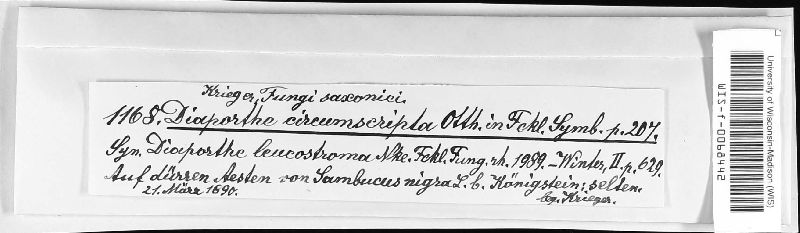 Krieger, Fungi saxonici.
1168. Diaporthe circumscripta Otth. in Fckl. Symb. p. 207.
Syn. Diaporthe leucostroma Nke. Fckl. Fung. rh. 1989. – Winter, II. p. 629.
Auf dürren Aesten von Sambucus nigra L. b. Königstein; selten.
21. März 1890. lg. Krieger.
University of Wisconsin-Madison (WIS)
WIS-f-0068442